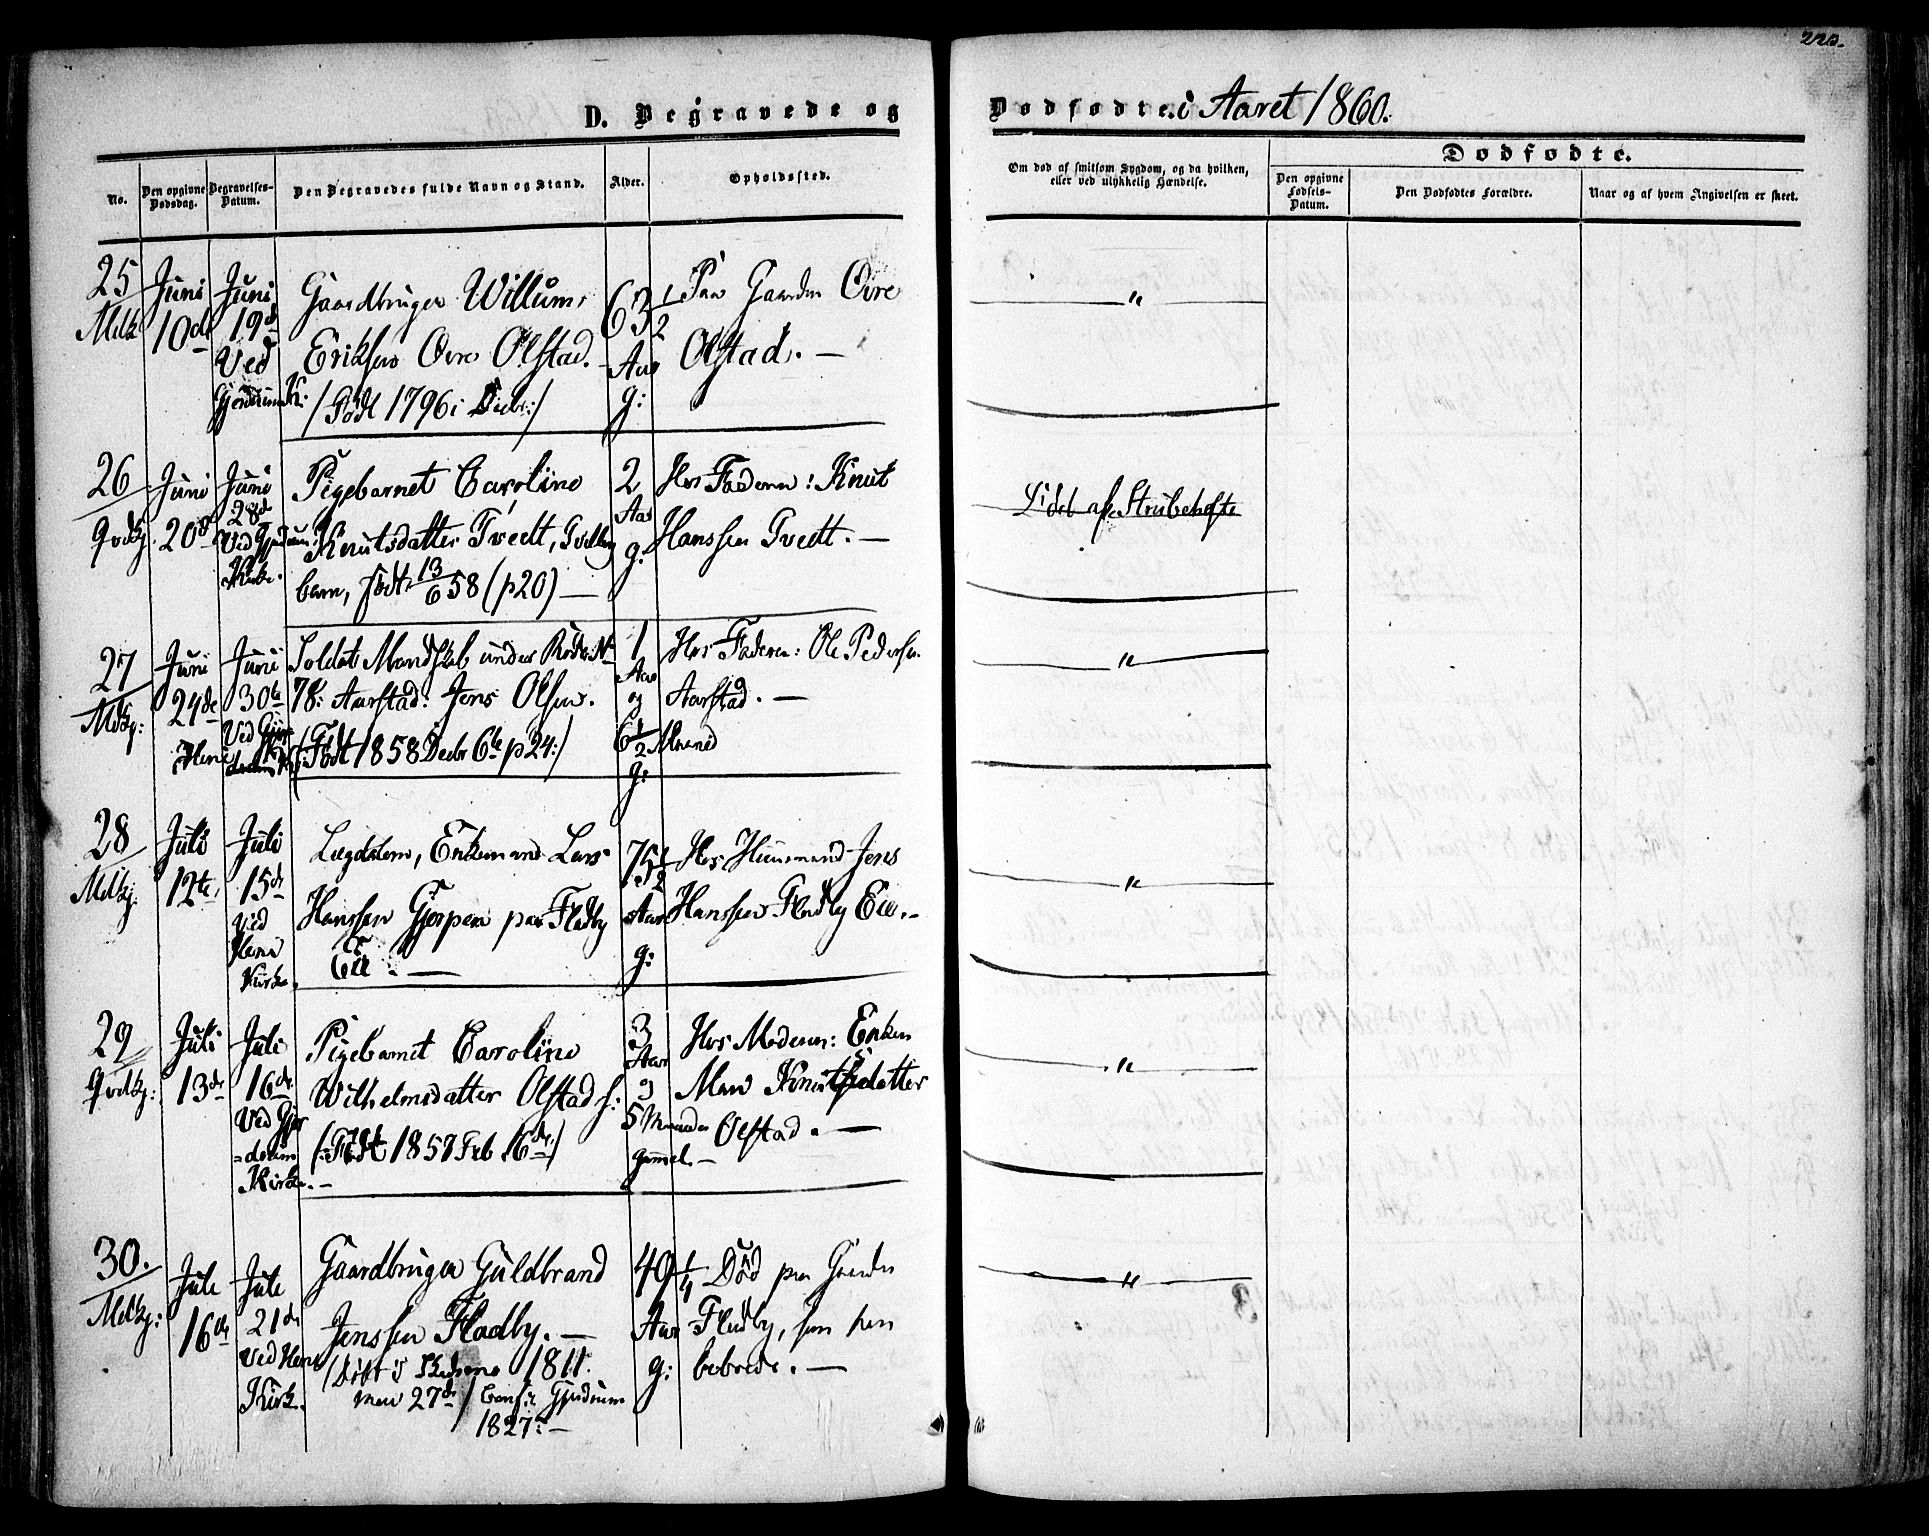 220.
D. Begravede og Dødfødte. i Aaret 1860.
No.
Den opgivne Dødsdag.
Begravelses-Datum.
Den Begravedes fulde Navn og Stand.
Alder.
Opholdssted.
Om død af smitsom Sygdom, og da hvilken, eller ved ulykkelig Hændelse.
Dødfødte.
Den opgivne Fødsels-Datum.
Den Dødfødtes Forældre.
Naar og af hvem Angivelsen er skeet.
25
Mdk
Juni
10de
Juni
19de
Ved
Gjerdrum K:
Gaardbruger Willum
Eriksen Øvre Ølstad.
/Født 1796 i Decbr:/
63 1/2
Aar
g:
Paa Gaarden Øvre
Ølstad. —
"
26
Qvdkj.
Juni
20de
Juni
28de
Ved Gjerdrum
Kirke.
Pigebarnet Caroline
Knutsdatter Tvedt, Tvilling
barn, født 13/6 58 (p20) —
2
Aar
g:
Hos Faderen: Knut
Hanssen Tvedt. —
Lidel af Strubehoste
27
Mdkj:
Juni
24de
Juni
30te
Ved Gjer
drum K
Heni
Soldat Mandskab under Rode N
78: Aarstad: Jens Olsen.
(:Født 1858 Decbr 6te p24:/
1
Aar
og
6 1/2 Maaned
g:
Hos Faderen: Ole Pedersen
Aarstad. —
"
28
Mdkj.
Juli
12te
Juli
15de
Ved
Heni
Kirke.
Lægdslem, Enkemand Lars
Hanssen Gjerpen paa Fladby
Eie . —
75 1/2
Aar
g:
Hos Huusmand Jens
Hanssen Fladby Eie. –
"
29
Qvdkj:
Juli
13de
Juli
16de
Ved Gjer
=drum
Kirke. –
Pigebarnet Caroline
Wilhelmsdatter Ølstad f:
(:Født 1857 Feb 16de:/
3
Aar
og
5 Maaneder
gammel. –
Hos Moderen: Enken
Mari Knutsdatter
Ølstad . —
"
30.
Mdkj:
Juli
16de
Juli
21de
Ved Heni
Kirk.
Gaardbruger Guldbrand
Jenssen Fladby. —
/Døbt i Skedsmo 1811.
Mai 27de/ Conf: i Gjerdrum
1827: –
49 1/4
Aar
g:
Død paa Gaarden
Fladby, som han
beboede. —
"